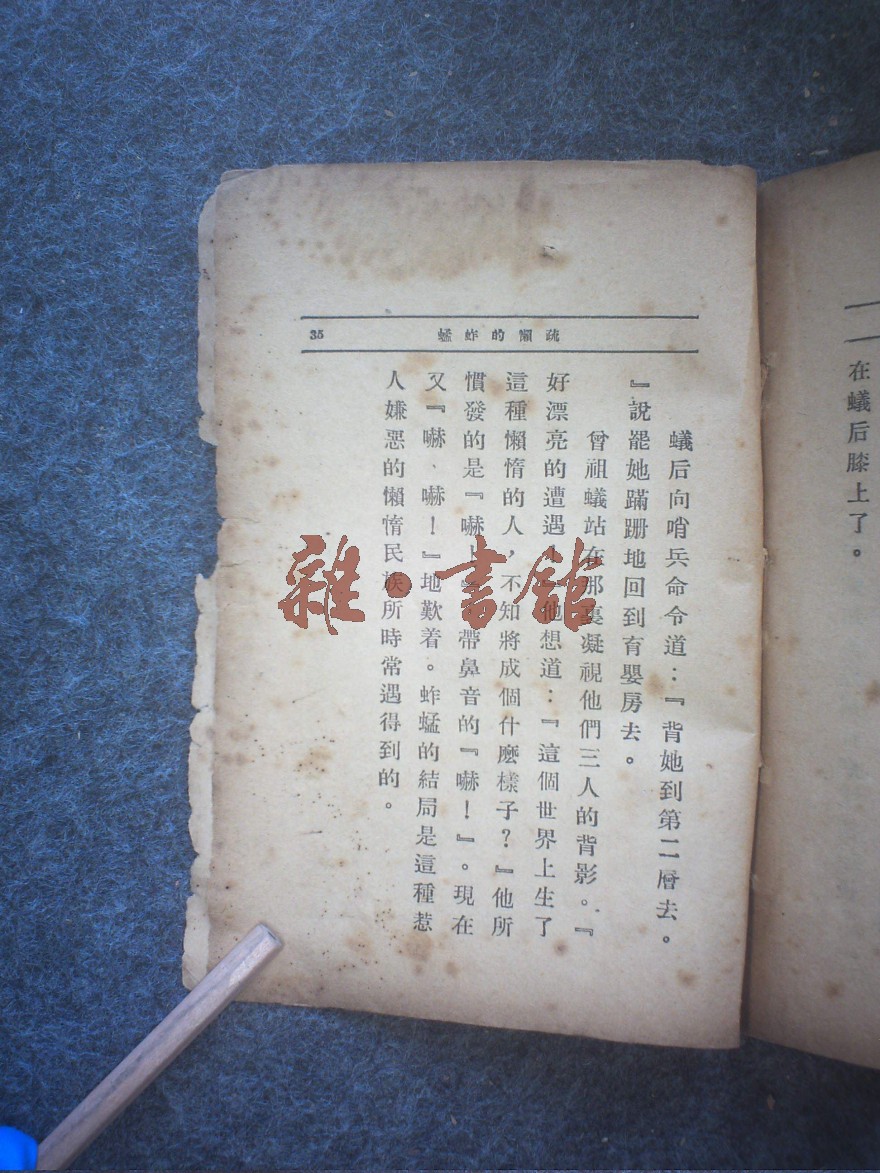 在蟻后膝上了。
疏懶的蚱蜢
35
蟻后向哨兵命令道：『背她到第二層去。
』說罷她蹣跚地回到育嬰房去。
曾祖蟻站在那裏凝視他們三人的背影。『
好漂亮的遭遇！』他想道：『這個世界上生了
這種懶惰的人，不知將成個什麼樣子？』他所
慣發的是『嚇 帶鼻音的『嚇！』。現在
又『嚇、嚇！』地歎着。蚱蜢的結局是這種惹
人嫌惡的懶惰民族所時常遇得到的。
雜·書館